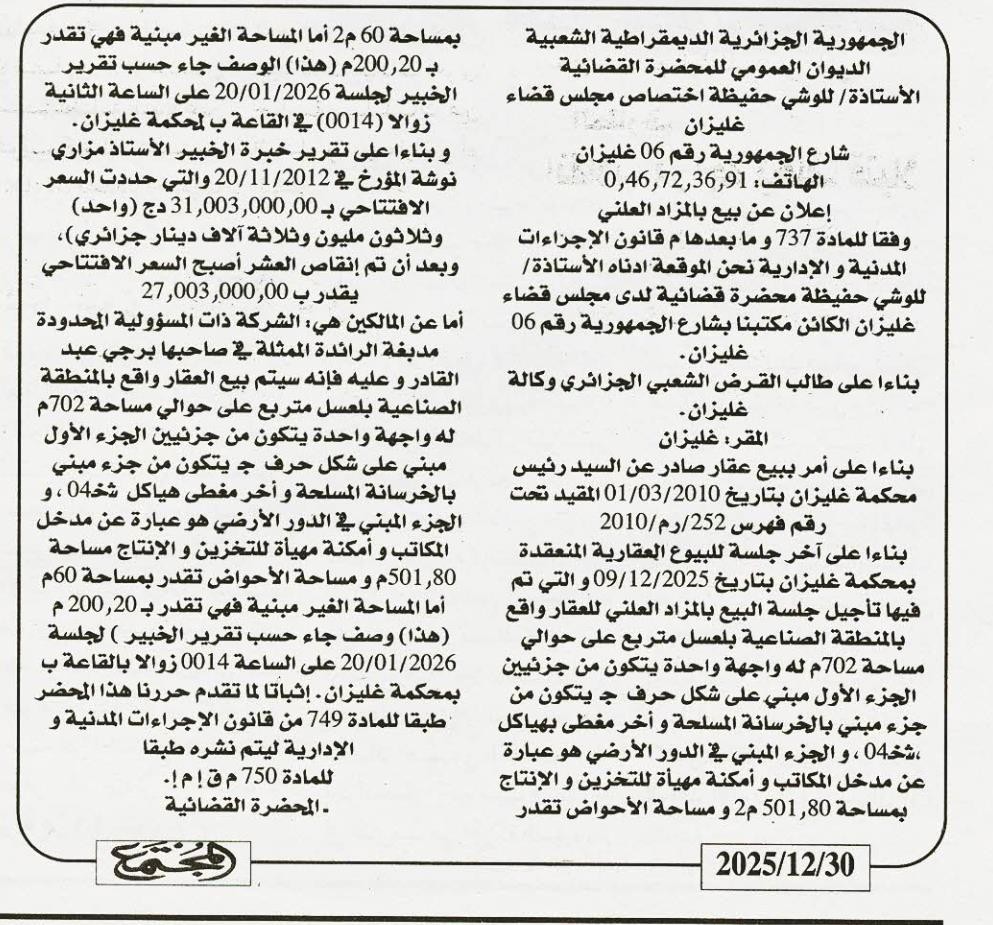 الجمهورية الجزائرية الديمقراطية الشعبية
الديوان العمومي للمحضرة القضائية
الأستاذة/ للوشي حفيظة اختصاص مجلس قضاء
غليزان
شارع الجمهورية رقم 06 غليزان
الهاتف: 0,46,72,36,91
إعلان عن بيع بالمزاد العلني
وفقا للمادة 737 و ما بعدها م قانون الإجراءات
المدنية و الإدارية نحن الموقعة ادناه الأستاذة/
للوشي حفيظة محضرة قضائية لدى مجلس قضاء
غليزان الكائن مكتبنا بشارع الجمهورية رقم 06
غليزان.
بناءا على طالب القرض الشعبي الجزائري وكالة
غليزان.
المقر: غليزان
بناءا على أمر ببيع عقار صادر عن السيد رئيس
محكمة غليزان بتاريخ 01/03/2010 المقيد تحت
رقم فهرس 252/رم/2010
بناءا على آخر جلسة للبيوع العقارية المنعقدة
بمحكمة غليزان بتاريخ 09/12/2025 و التي تم
فيها تأجيل جلسة البيع بالمزاد العلني للعقار واقع
بالمنطقة الصناعية بلعسل متربع على حوالي
مساحة 702م له واجهة واحدة يتكون من جزئيين
الجزء الأول مبني على شكل حرف ج يتكون من
جزء مبني بالخرسانة المسلحة و أخر مغطى بهياكل
،ثخ04 ، و الجزء المبني في الدور الأرضي هو عبارة
عن مدخل المكاتب و أمكنة مهيأة للتخزين و الإنتاج
بمساحة 501,80 م2 و مساحة الأحواض تقدر
بمساحة 60 م2 أما المساحة الغير مبنية فهي تقدر
بـ 200,20م (هذا) الوصف جاء حسب تقرير
الخبير لجلسة 20/01/2026 على الساعة الثانية
زوالا (0014) في القاعة ب لمحكمة غليزان.
و بناءا على تقرير خبرة الخبير الأستاذ مزاري
نوشة المؤرخ في 20/11/2012 والتي حددت السعر
الافتتاحي بـ 31,003,000,00 دج (واحد)
وثلاثون مليون وثلاثة آلاف دينار جزائري)،
وبعد أن تم إنقاص العشر أصبح السعر الافتتاحي
يقدر ب 27,003,000,00
أما عن المالكين هي: الشركة ذات المسؤولية المحدودة
مدبغة الرائدة الممثلة في صاحبها برجي عبد
القادر و عليه فإنه سيتم بيع العقار واقع بالمنطقة
الصناعية بلعسل متربع على حوالي مساحة 702م
له واجهة واحدة يتكون من جزئيين الجزء الأول
مبني على شكل حرف ج يتكون من جزء مبني
بالخرسانة المسلحة و أخر مغطى هياكل ثخ04 ، و
الجزء المبني في الدور الأرضي هو عبارة عن مدخل
المكاتب و أمكنة مهيأة للتخزين و الإنتاج مساحة
501,80م و مساحة الأحواض تقدر بمساحة 60م
أما المساحة الغير مبنية فهي تقدر بـ 200,20 م
(هذا) وصف جاء حسب تقرير الخبير ) لجلسة
20/01/2026 على الساعة 0014 زوالا بالقاعة ب
بمحكمة غليزان. إثباتا لما تقدم حررنا هذا المحضر
طبقا للمادة 749 من قانون الاجراءات المدنية و
الإدارية ليتم نشره طبقا
للمادة 750 م ق إ م إ.
.المحضرة القضائية
المجتمع
2025/12/30